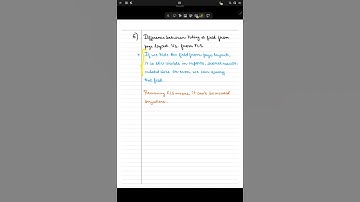 6) Difference between hiding a field from
page layout Vs. from FLS
If we hide the field from page layout,
it is still visible in reports, search results
related lists or even we can query
that field.
Removing FLS means, it can't be accessed
anywhere.